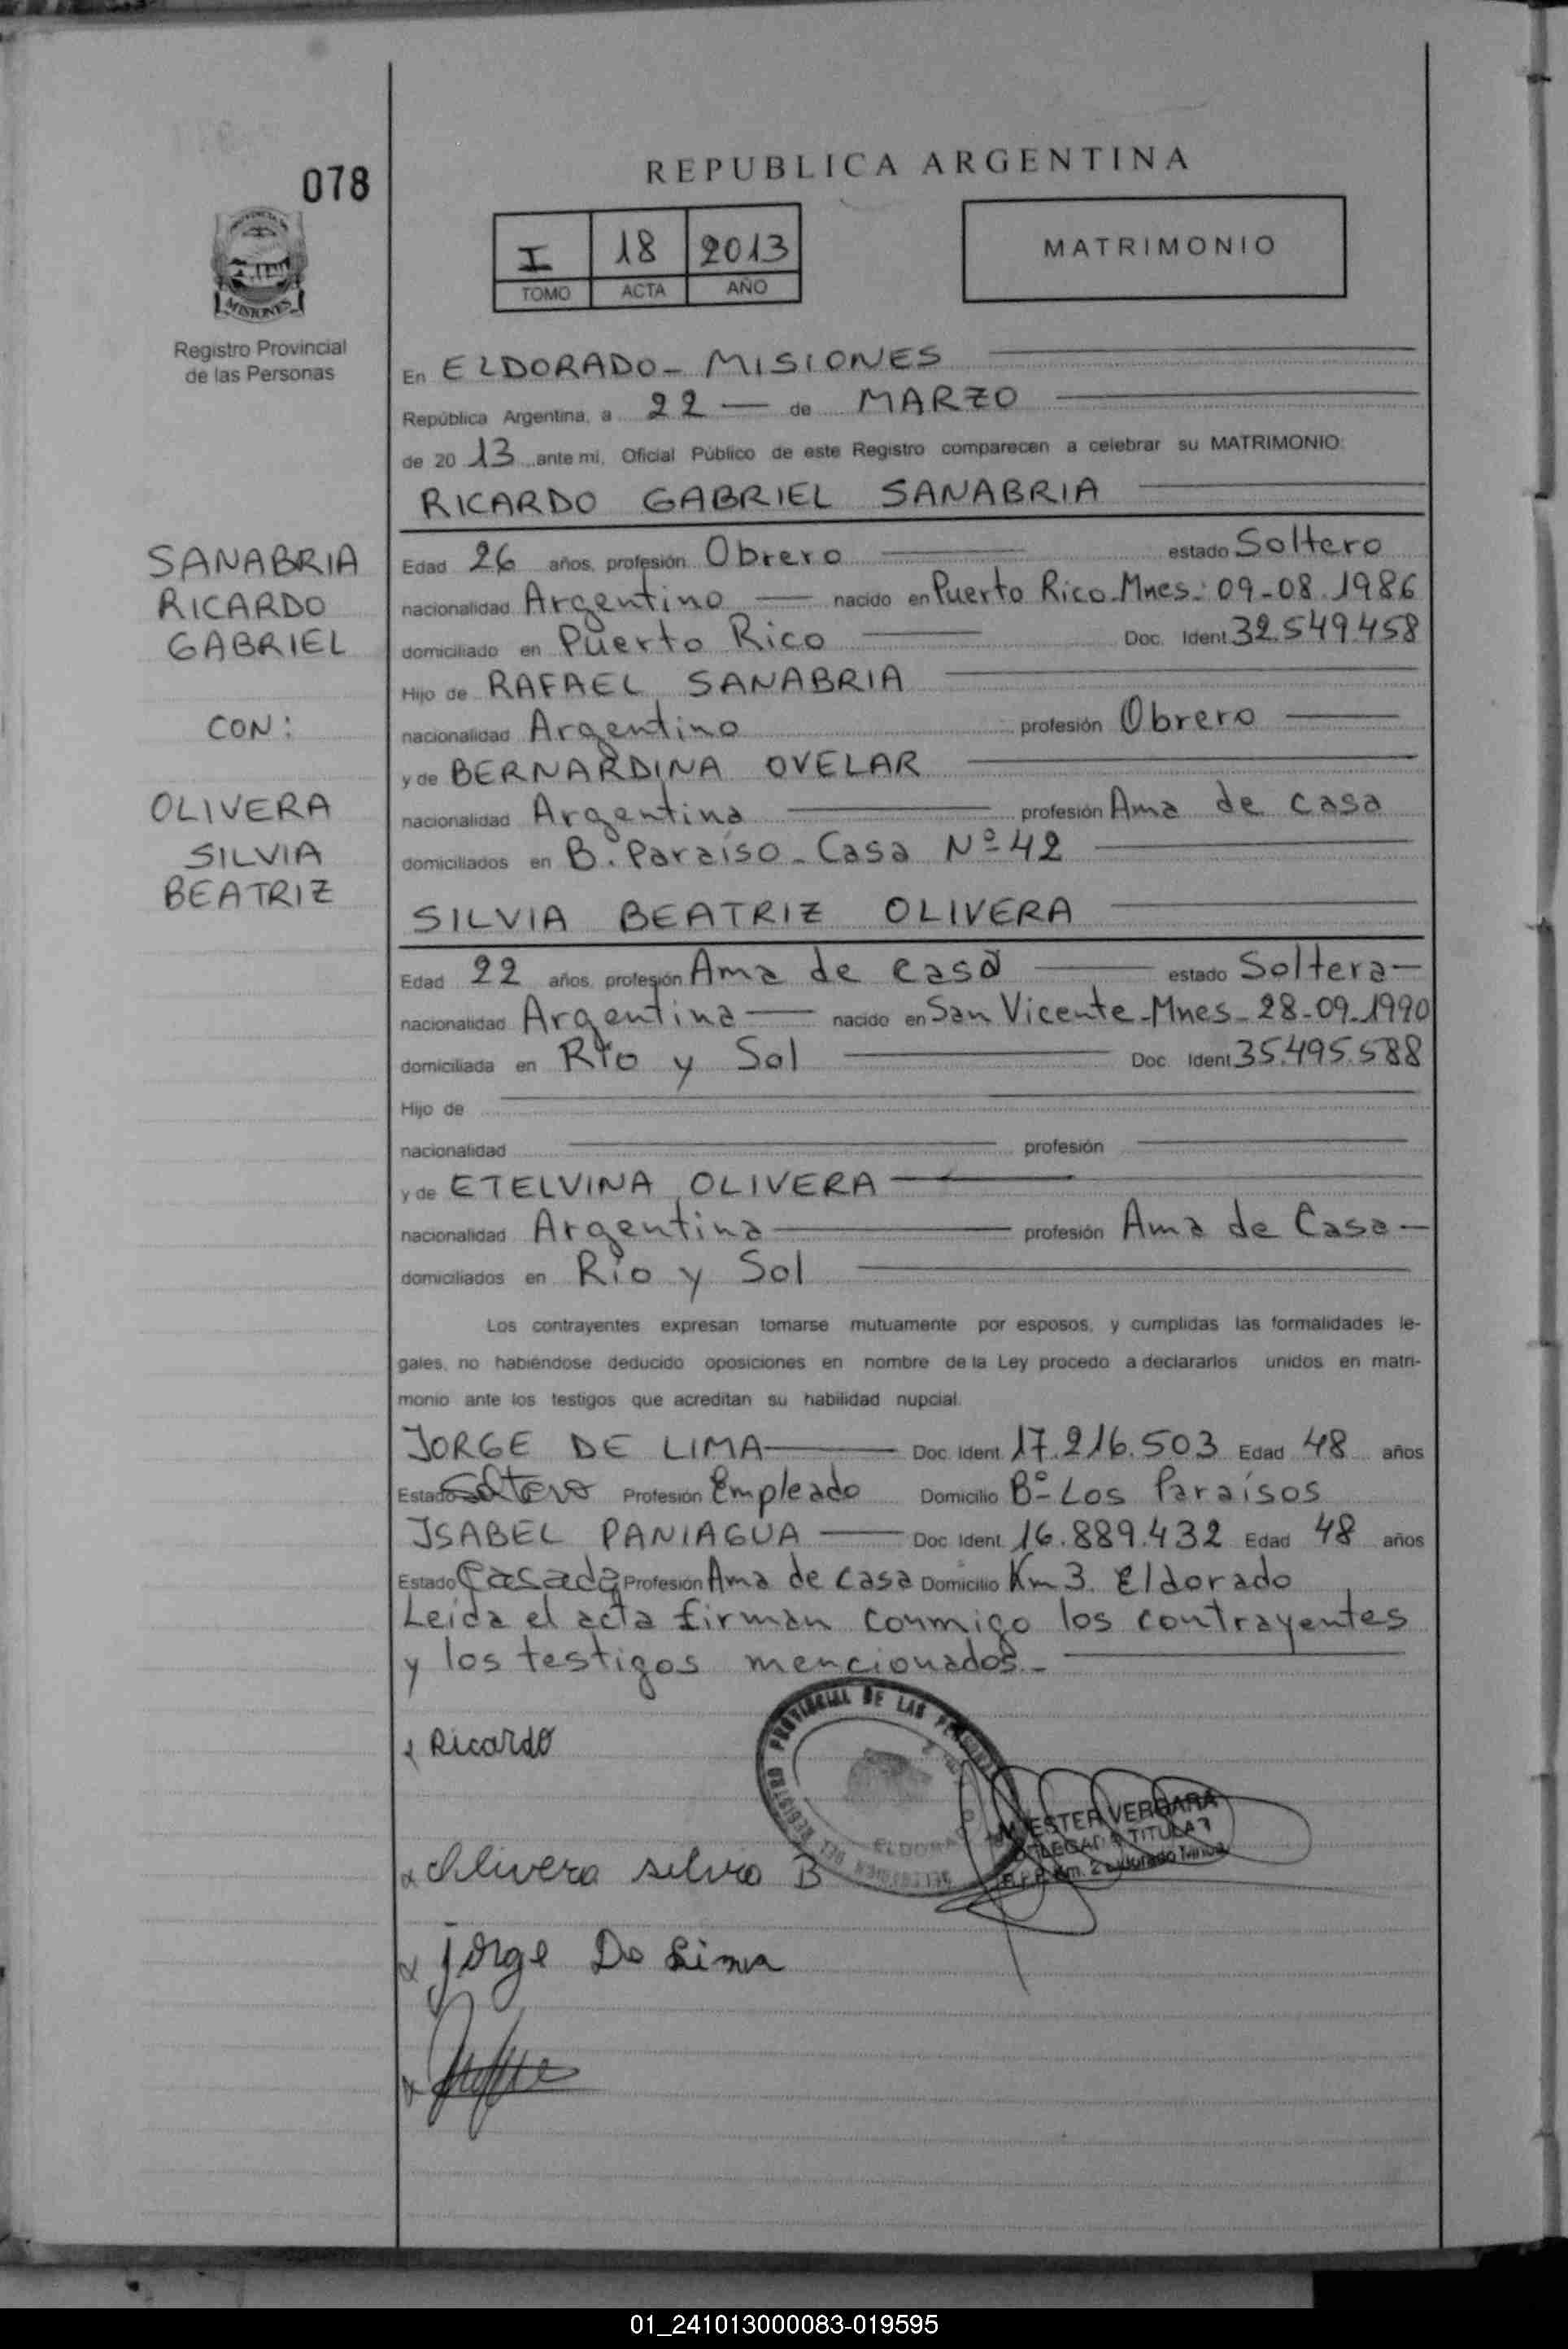 078
REPUBLICA ARGENTINA
I 18 2013
TOMO ACTA AÑO
MATRIMONIO
MISIONES
Registro Provincial
de las Personas
En ELDORADO - MISIONES
República Argentina, a 22 de MARZO
de 20 13 ante mi, Oficial Público de este Registro comparecen a celebrar su MATRIMONIO:
RICARDO GABRIEL SANABRIA
SANABRIA
RICARDO
GABRIEL
CON:
OLIVERA
SILVIA
BEATRIZ
Edad 26 años, profesión Obrero estado Soltero
nacionalidad Argentino nacido en Puerto Rico-Mnes: 09-08.1986
domiciliado en Puerto Rico Doc. Ident 32.549.458
Hijo de RAFAEL SANABRIA
nacionalidad Argentino profesión Obrero
y de BERNARDINA OVELAR
nacionalidad Argentina profesión Ama de casa
domiciliados en B. Paraíso - Casa Nº 42
SILVIA BEATRIZ OLIVERA
Edad 22 años, profesión Ama de casa estado Soltera
nacionalidad Argentina nacido en San Vicente-Mnes-28-09-1990
domiciliada en Río y Sol Doc. Ident 35.495.588
Hijo de
nacionalidad profesión
y de ETELVINA OLIVERA
nacionalidad Argentina profesión Ama de Casa
domiciliados en Río y Sol
Los contrayentes expresan tomarse mutuamente por esposos, y cumplidas las formalidades le-
gales, no habiéndose deducido oposiciones en nombre de la Ley procedo a declararlos unidos en matri-
monio ante los testigos que acreditan su habilidad nupcial.
JORGE DE LIMA Doc. Ident. 17.216.503 Edad 48 años
Estado Soltero Profesión Empleado Domicilio Bº Los Paraísos
ISABEL PANIAGUA Doc. Ident. 16.889.432 Edad 48 años
Estado Casada Profesión Ama de casa Domicilio Km 3. Eldorado
Leída el acta firman conmigo los contrayentes
y los testigos mencionados.-
Ricardo
PROVINCIAL DE LAS
ELDORADO
ESTER VERGARA
TITULAR
Km. 2 Eldorado
Olivera silvia B
jorge De Lima
01_241013000083-019595